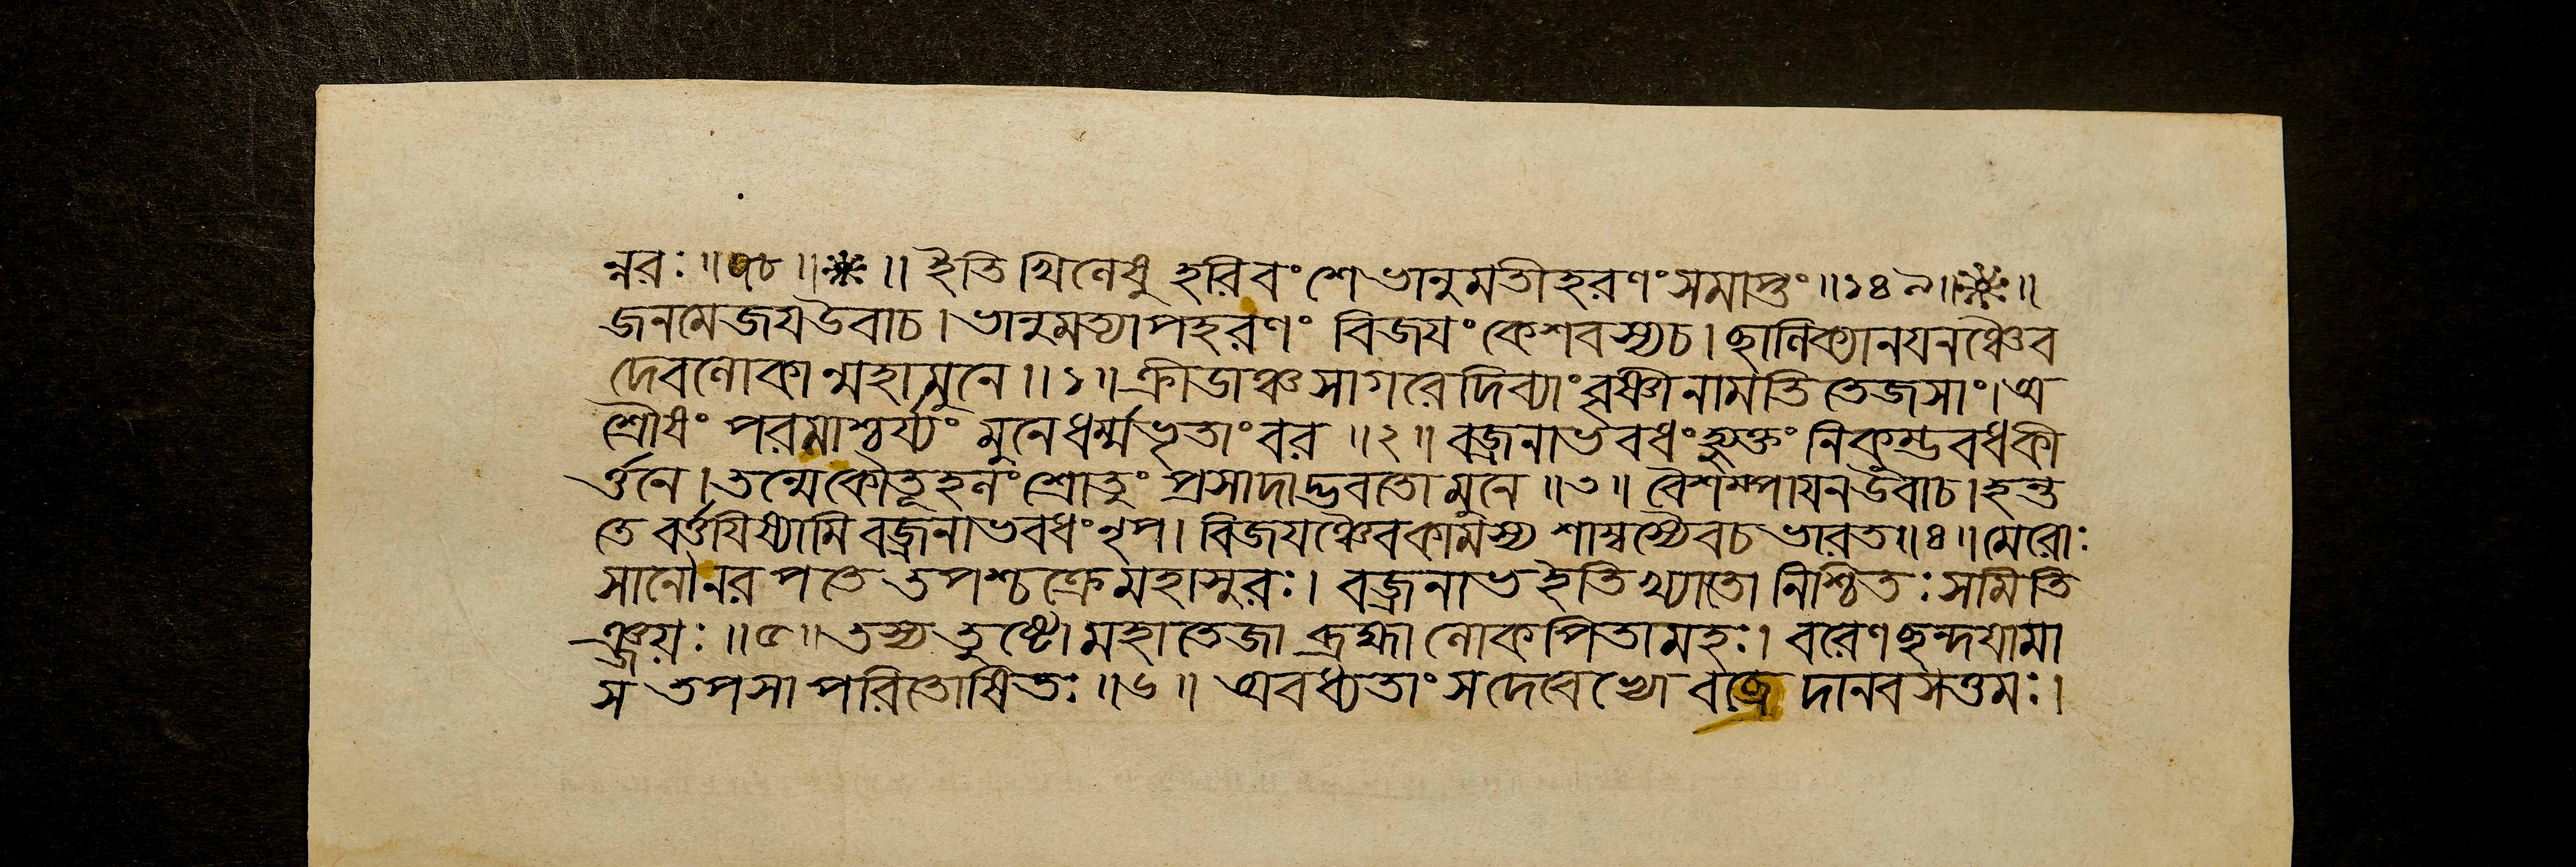 ন্নরঃ ॥৭৮॥❈॥ ইতি খিলেষু হরিবংশে ভানুমতীহরণং সমাপ্তং ॥১৪৯॥❈॥
জনমেজয উবাচ। ভানুমত্যাপহরণং বিজযং কেশবস্য চ। ছালিক্যানযনঞ্চৈব
দেবলোকান্মহামুনে ॥১॥ ক্রীডাঞ্চ সাগরে দিব্যাং বৃষ্ণীনামতিতেজসাং। অ
শ্রৌষং পরমাশ্চর্য্যং মুনে ধর্ম্মভৃতাং বর ॥২॥ বজ্রনাভবধং হ্যুক্তং নিকুম্ভবধকী
র্ত্তনে। তন্মে কৌতূহলং শ্রোতুং প্রসাদাদ্ভবতো মুনে ॥৩॥ বৈশম্পাযন উবাচ। হন্ত
তে বর্ত্তযিষ্যামি বজ্রনাভবধং নৃপ। বিজযঞ্চৈব কামস্য শাম্বস্যৈব চ ভারত ॥৪॥ মেরোঃ
সানৌ নরপতে তপশ্চক্রে মহাসুরঃ। বজ্রনাভ ইতি খ্যাতো নিশ্চিতঃ সমিতি
ঞ্জয়ঃ ॥৫॥ তস্য তুষ্টো মহাতেজা ব্রহ্মা লোকপিতামহঃ। বরেণ ছন্দযামা
স তপসা পরিতোষিতঃ ॥৬॥ অবধ্যতাং স দেবেভ্যো বব্রে দানবসত্তমঃ।